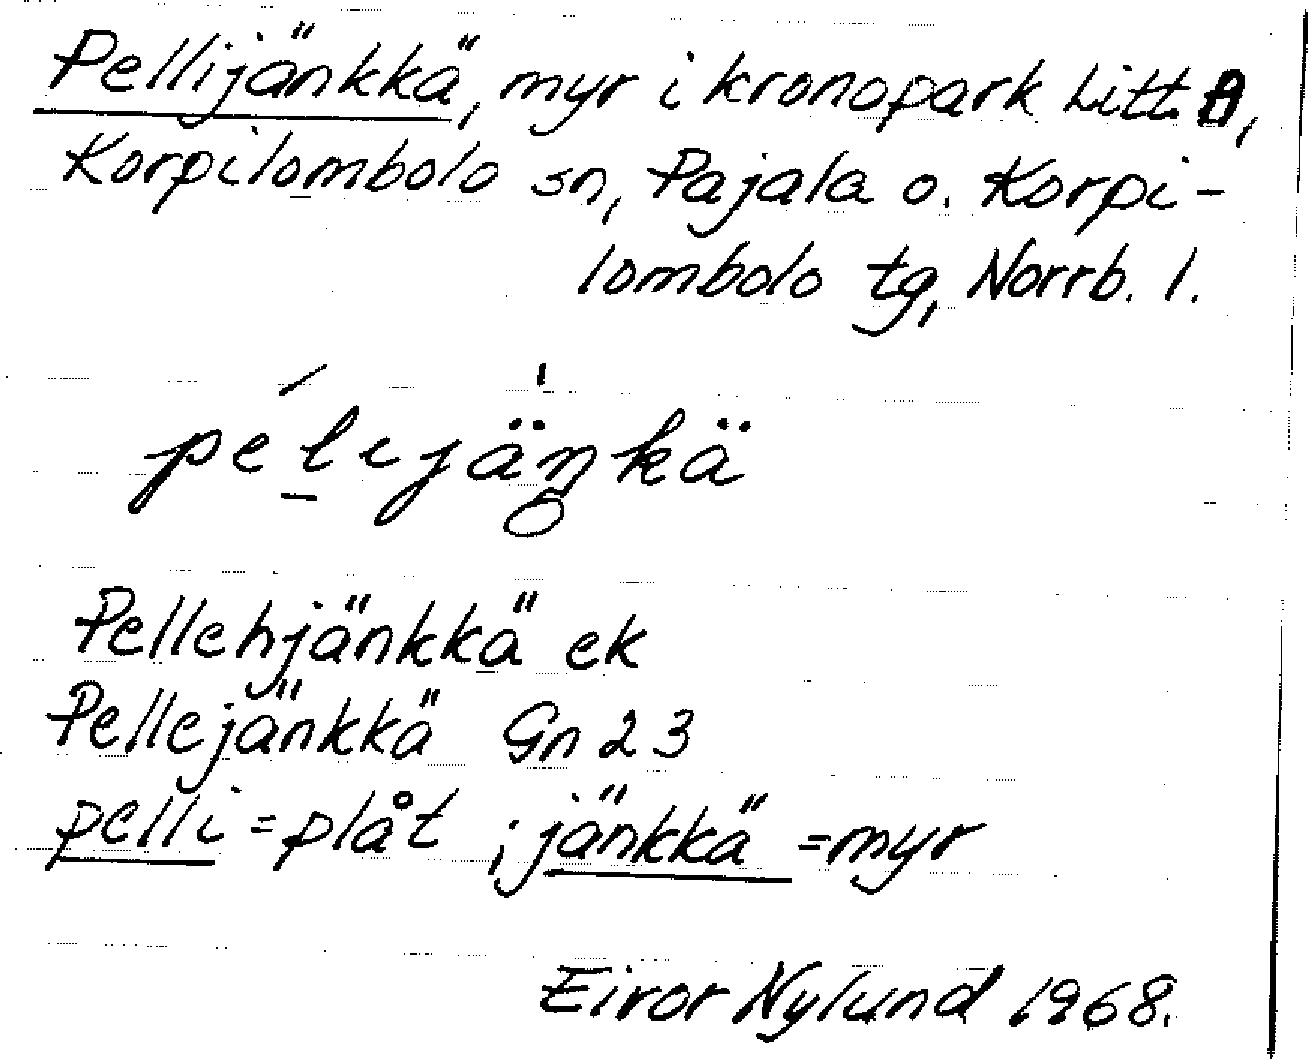 Pellijänkkä, myr i kronopark Litt. A,
Korpilombolo sn, Pajala o. Korpi-
lombolo tg, Norrb. l.
pelejäŋkä
Pellehjänkkä ek
Pellejänkkä Gn 23
pelli = plåt ; jänkkä = myr
Eivor Nylund 1968.